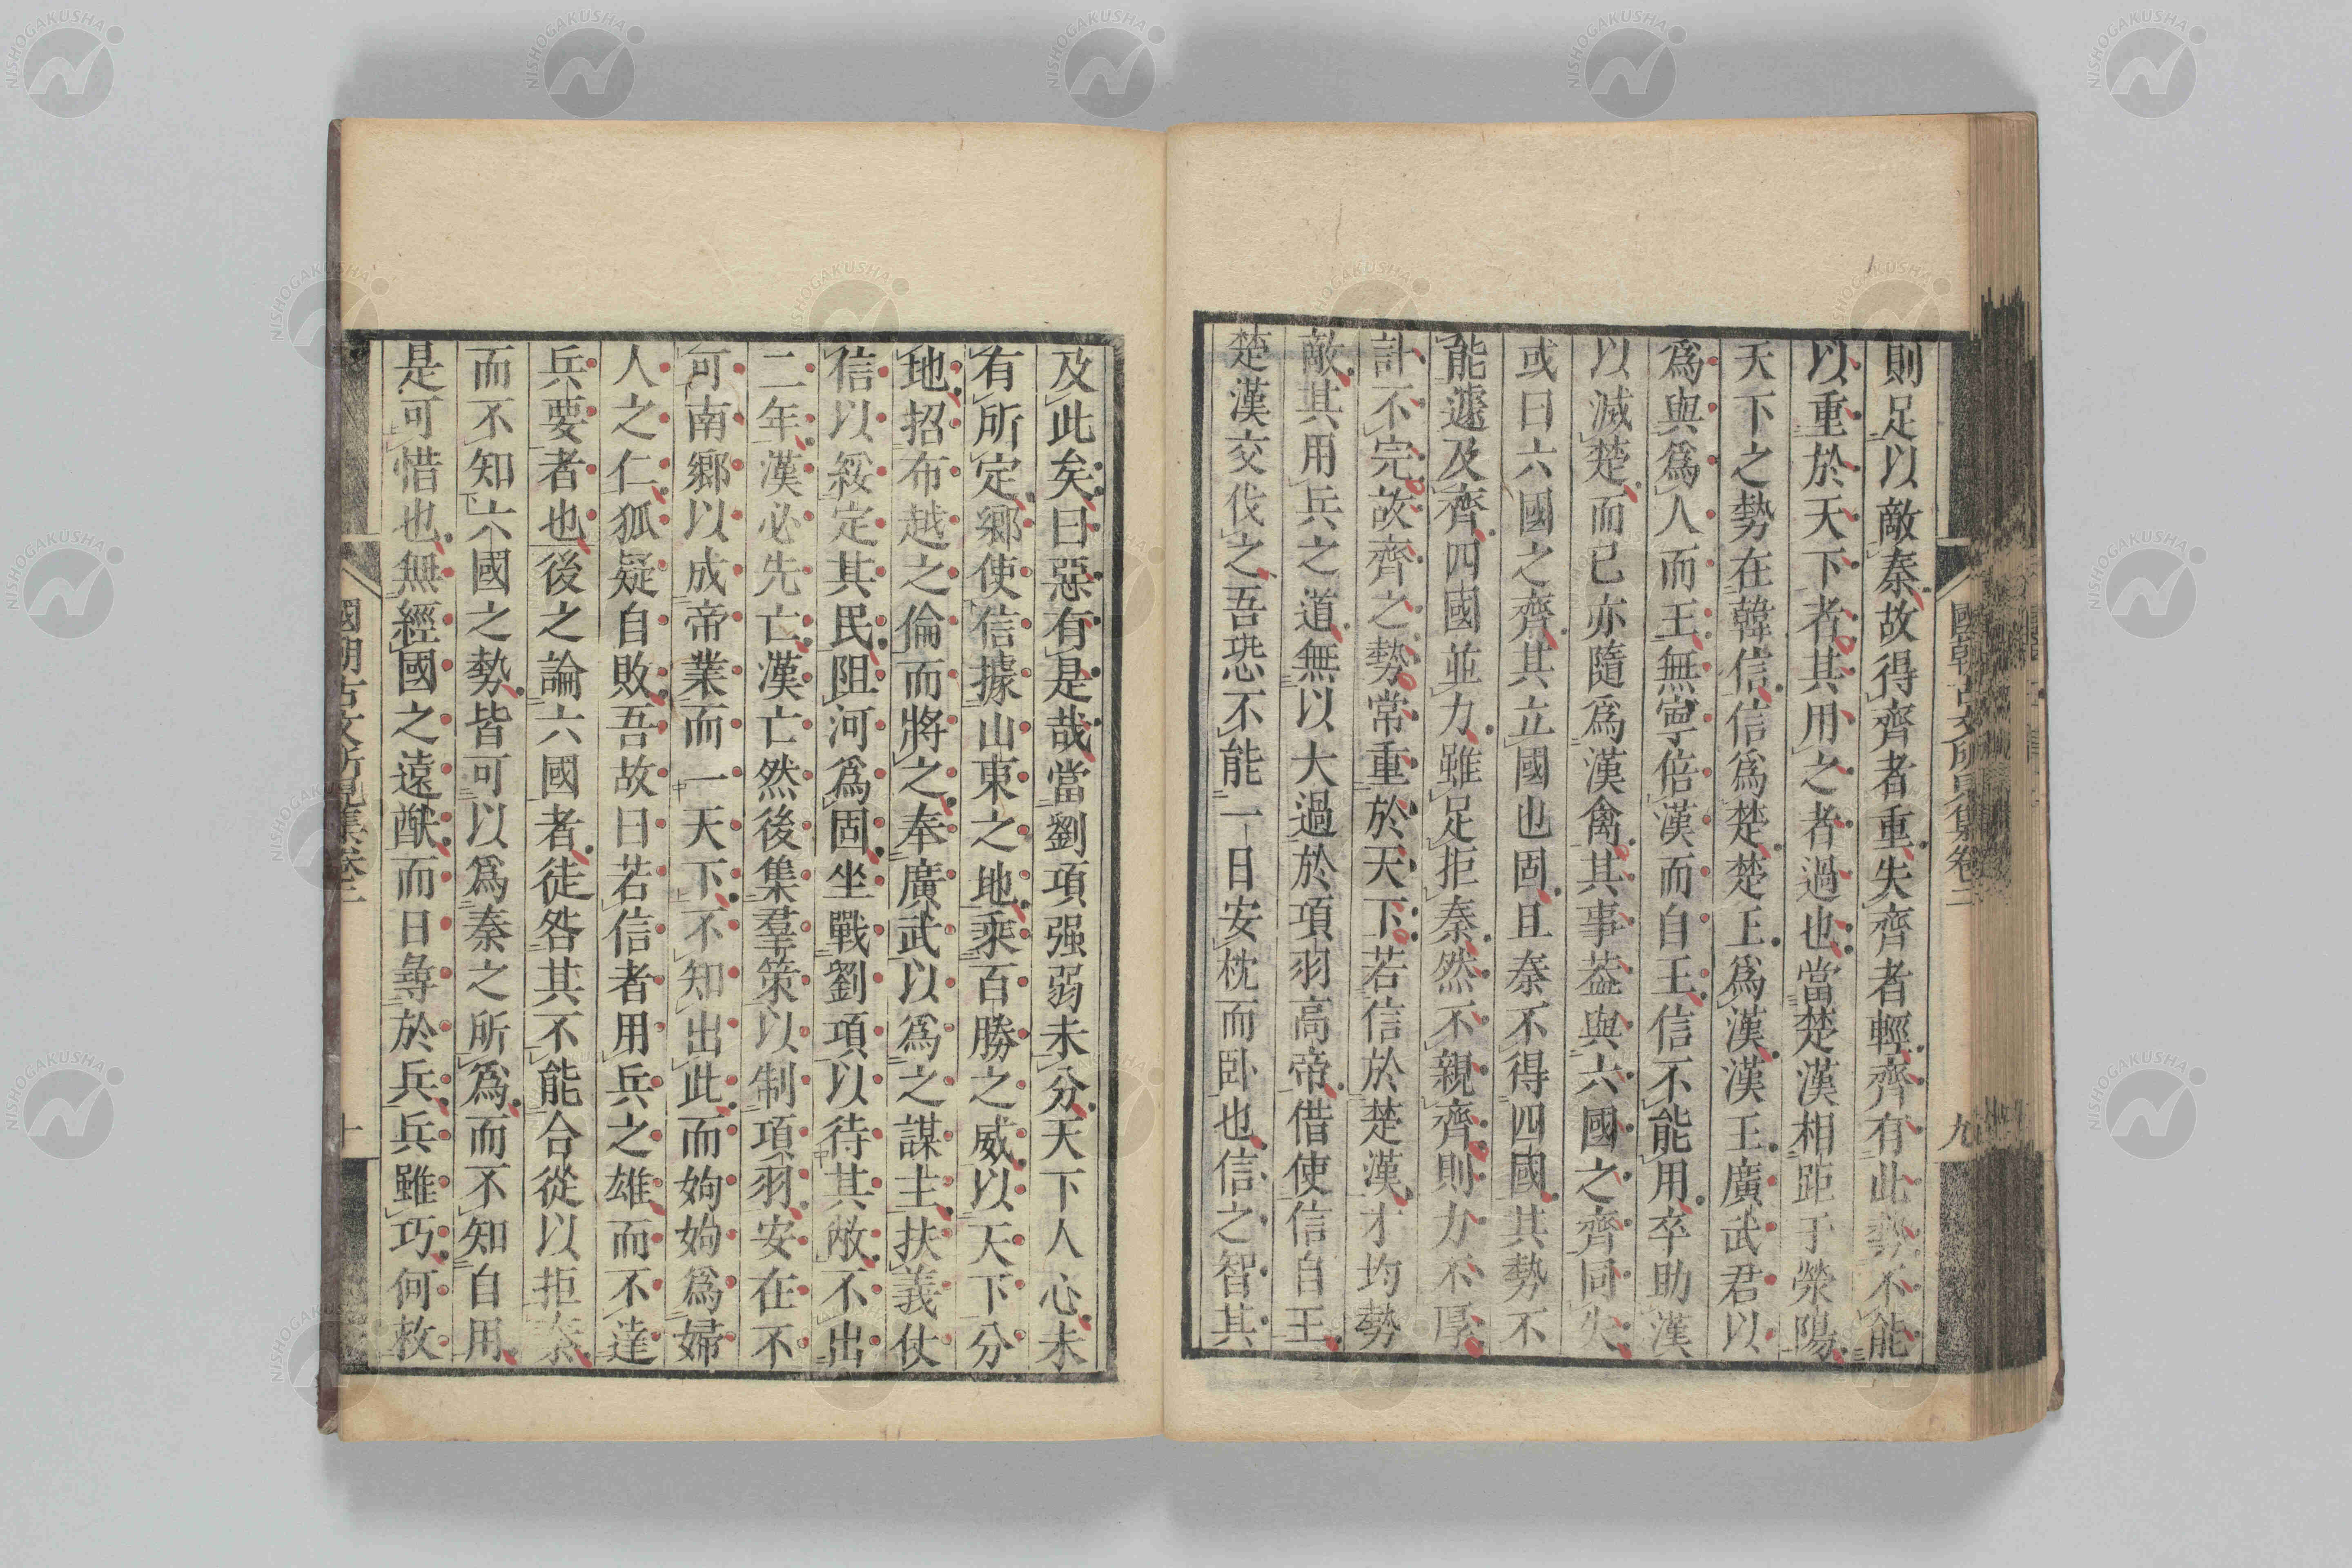 則足以敵秦故得齊者重失齊者輕齊有此勢不能
以重於天下者其用之者過也當楚漢相距于滎陽
天下之勢在韓信信爲楚楚王爲漢漢王廣武君以
爲與爲人而王無寧倍漢而自王信不能用卒助漢
以滅楚而已亦隨爲漢禽其事葢與六國之齊同失
或曰六國之齊其立國也固且秦不得四國其勢不
能遽及齊四國並力雖足拒秦然不親齊則力不厚
計不完故齊之勢常重於天下若信於楚漢才均勢
敵其用兵之道無以大過於項羽高帝借使信自王
楚漢交伐之吾恐不能一日安枕而臥也信之智其
國朝古文所見集卷二
九
及此矣曰惡有是哉當劉項强弱未分天下人心未
有所定鄉使信據山東之地乘百勝之威以天下分
地招布越之倫而將之奉廣武以爲之謀主扶義仗
信以綏定其民阻河爲固坐戰劉項以待其敝不出
二年漢必先亡漢亡然後集羣策以制項羽安在不
可南鄉以成帝業而一天下不知出此而姁姁爲婦
人之仁狐疑自敗吾故曰若信者用兵之雄而不達
兵要者也後之論六國者徒咎其不能合從以拒秦
而不知六國之勢皆可以爲秦之所爲而不知自用
是可惜也無經國之遠猷而日尋於兵兵雖巧何救
國朝古文所見集卷二
十
NISHOGAKUSHA